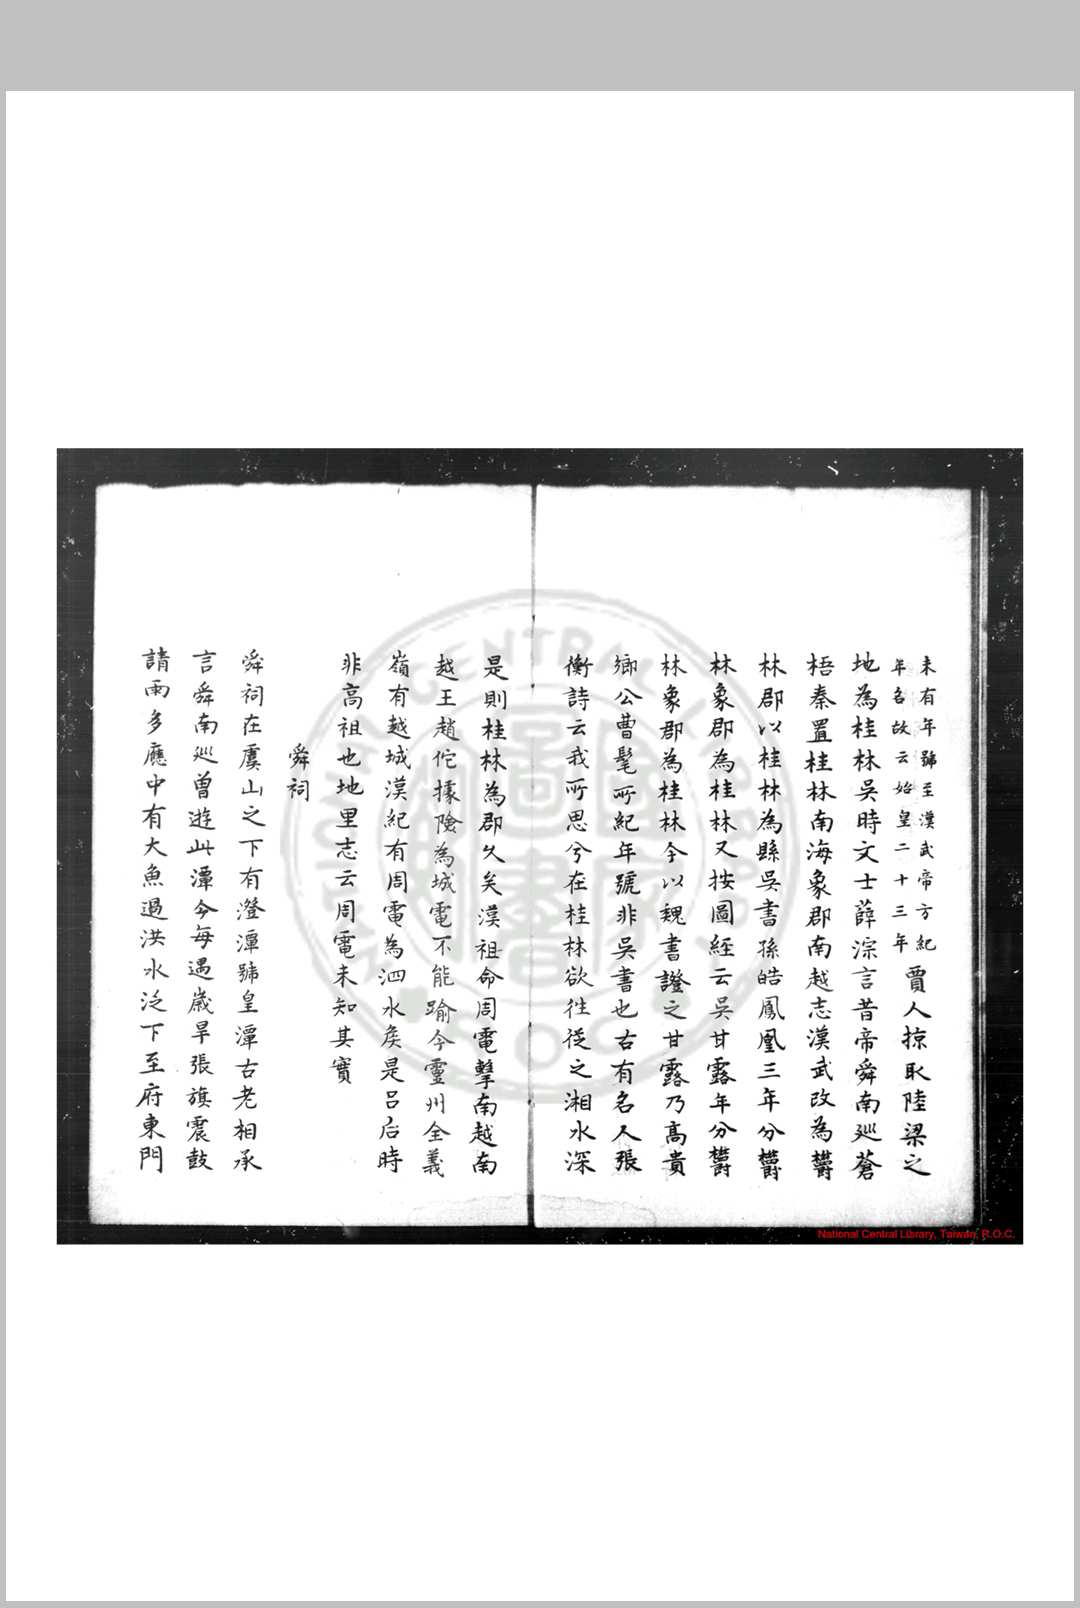 未有年號至漢武帝方紀
年名故云始皇二十三年賈人掠取陸梁之
地為桂林吳時文士薛淙言昔帝舜南巡蒼
梧秦置桂林南海象郡南越志漢武改為欝
林郡以桂林為縣吳書孫皓鳳凰三年分欝
林象郡為桂林又按圖經云吳甘露年分欝
林象郡為桂林今以魏書證之甘露乃髙貴
鄉公曹髦所紀年號非吳書也古有名人張
衡詩云我所思兮在桂林欲徃從之湘水深
是則桂林為郡久矣漢祖命周電擊南越南
越王趙佗據險為城電不能踰今靈州全義
嶺有越城漢紀有周電為泗水矦是吕后時
非高祖也地里志云周電未知其實
舜祠
舜祠在虞山之下有澄潭號皇潭古老相承
言舜南巡曾遊此潭今每遇歲旱張旗震鼓
請雨多應中有大魚遇洪水泛下至府東門
NATIONAL CENTRAL LIBRARY
R.O.C.
National Central Library, Taiwan, R.O.C.